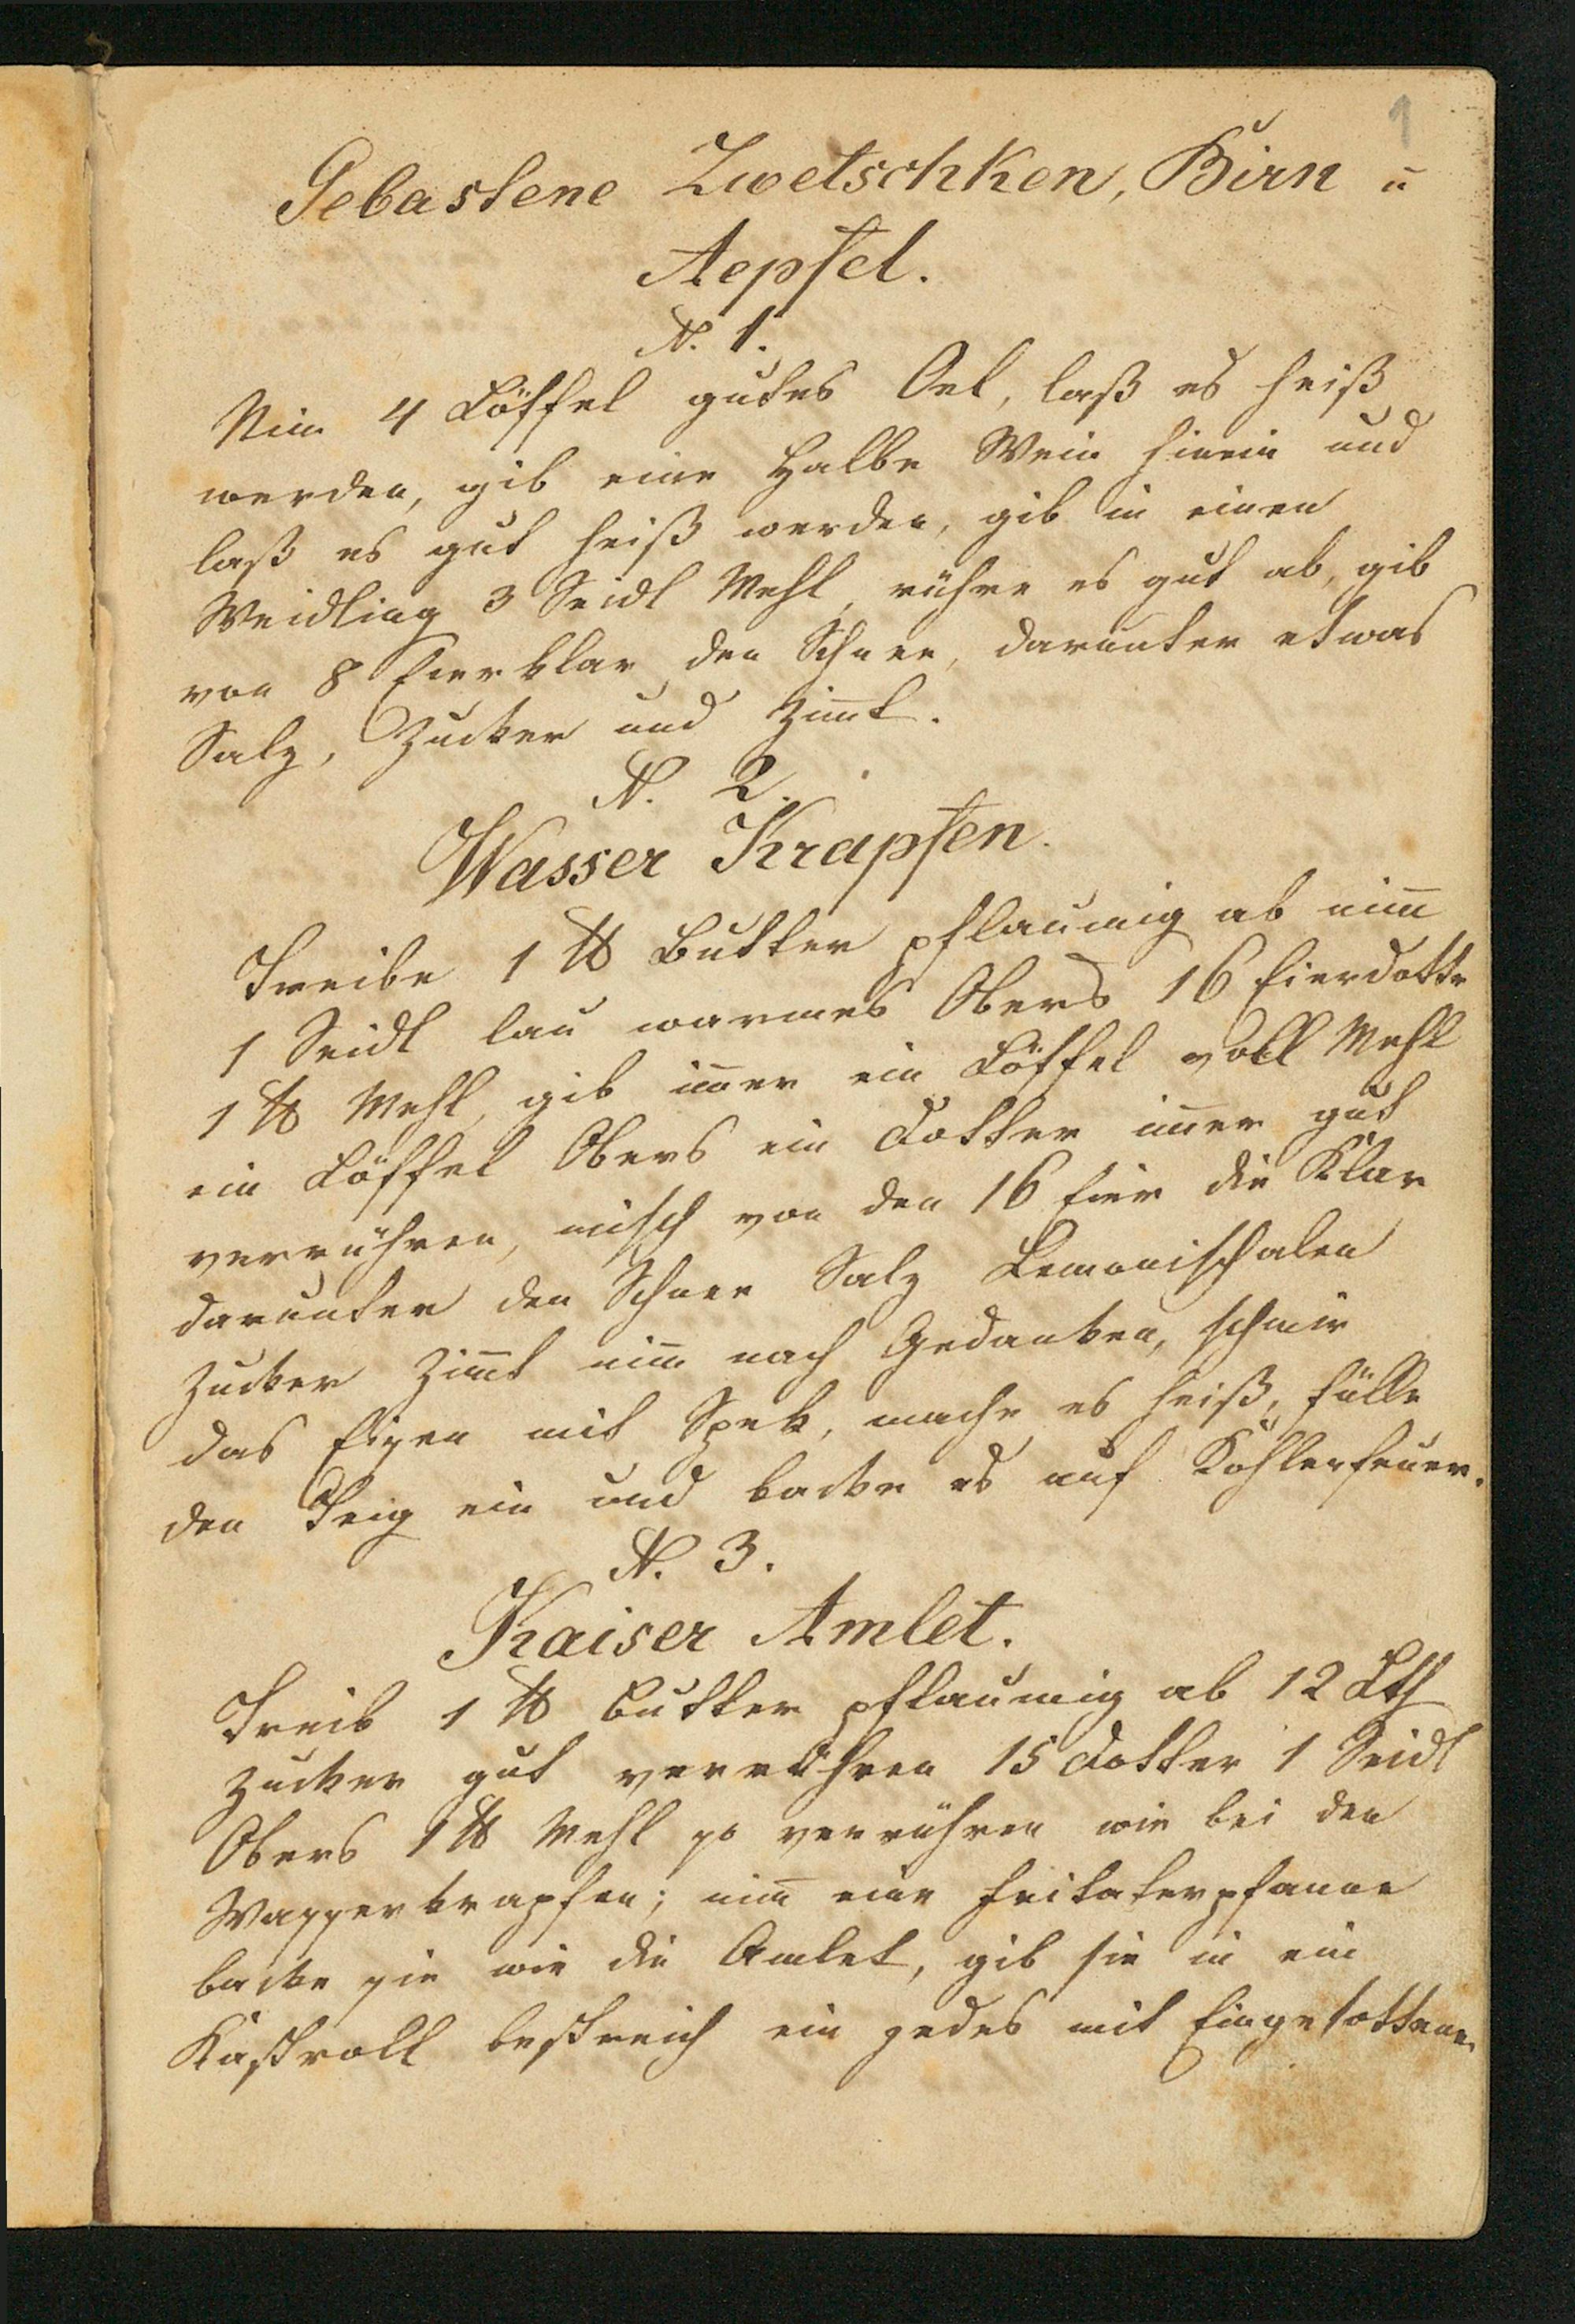 1
Gebastene Zwetschken, Birn u
Aepfel.
N. 1.
Nim̅ 4 Löffel gutes Oel, laß es heiß
werden, gib eine Halbe Wein hinein und
laß es gut heiß werden, gib in einen
Weidling 3 Seidl Mehl, rühre es gut ab, gib
von 8 Eierklar den Schnee, darunter etwas
Salz, Zucker und Zim̅t.
N. 2.
Wasser Krapfen.
Treibe 1 ℔ Butter pflaumig ab nim̅
1 Seidl lau warmes Obers 16 Eierdotte
1 ℔ Mehl, gib im̅er ein Löffel voll Mehl
ein Löffel Obers ein Dotter im̅er gut
verrühren, misch von den 16 Eier die Klar
darunter den Schnee Salz Lemonischalen
Zucker Zim̅t nim̅ nach Gedanken, schmir
das Eisen mit Spek, mache es heiß, fülle
den Teig ein und backe es auf Kohlerfeuer.
N. 3.
Kaiser Amlet.
Treib 1 ℔ Butter pflaumig ab 12 Lth
Zucker gut verrühren 15 Dotter 1 Seidl
Obers 1 ℔ Mehl so verrühren wie bei den
Wasserkrapfen; nim̅ eine Fritaterpfanne
backe sie wie die Amlet, gib sie in ein
Kastroll bestreich ein jedes mit Eingesottene